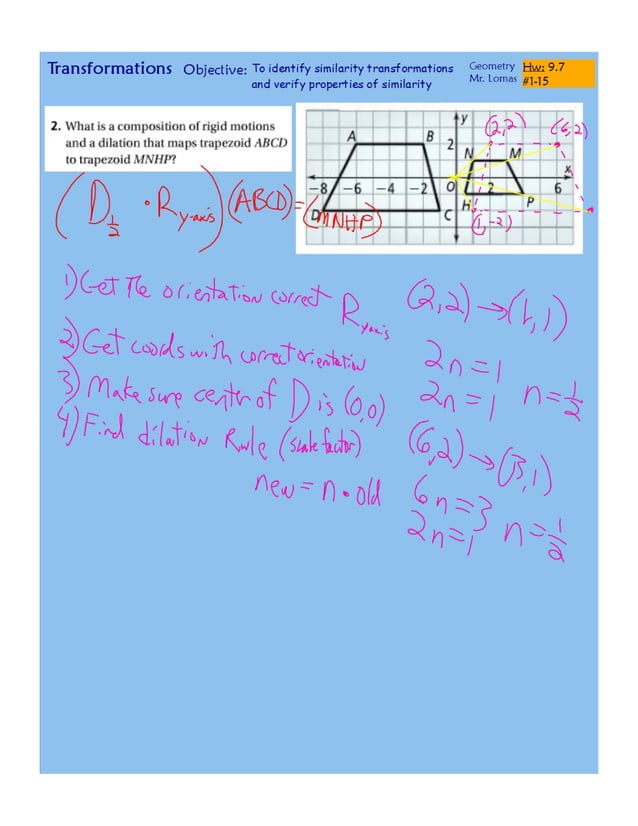 Transformations Objective: To identify similarity transformations
and verify properties of similarity
Geometry Hw: 9.7
Mr. Lomas #1-15
2. What is a composition of rigid motions
and a dilation that maps trapezoid ABCD
to trapezoid MNHP?
(D 1/2 • R y-axis)(ABCD) = (MNHP)
y (2,2) (6,2)
A B 2 N M
x
-8 -6 -4 -2 O 2 6
D C H P
(1,-2)
1) Get The orientation correct R y-axis (2,2) → (1,1)
2) Get coords with correct orientation 2n = 1
3) Make sure center of D is (0,0) 2n = 1 n = 1/2
4) Find dilation Rule (scale factor) (6,2) → (3,1)
new = n • old 6n = 3
2n = 1 n = 1/2